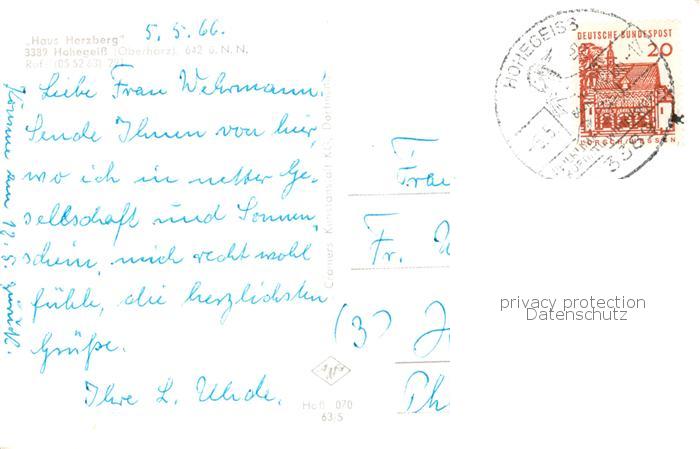 5.5.66.
„Haus Harzberg"
3389 Hohegeiß (Oberharz), 642 ü. N. N.
Ruf: (05 52 63)
Liebe Frau Wehrmann!
Sende Ihnen von hier,
wo ich in netter Ge-
sellschaft und Sonnen-
schein, mich recht wohl
fühle, die herzlichsten
Grüße.
Ihre L. Uhde.
Komme am 12.5. zurück.
Cramers Kunstanstalt KG, Dortmund
Ho 070
63/5
Frau
Fr.
(3)
HOHEGEISS
338
DEUTSCHE BUNDESPOST
20
LORSCH/HESSEN
privacy protection
Datenschutz